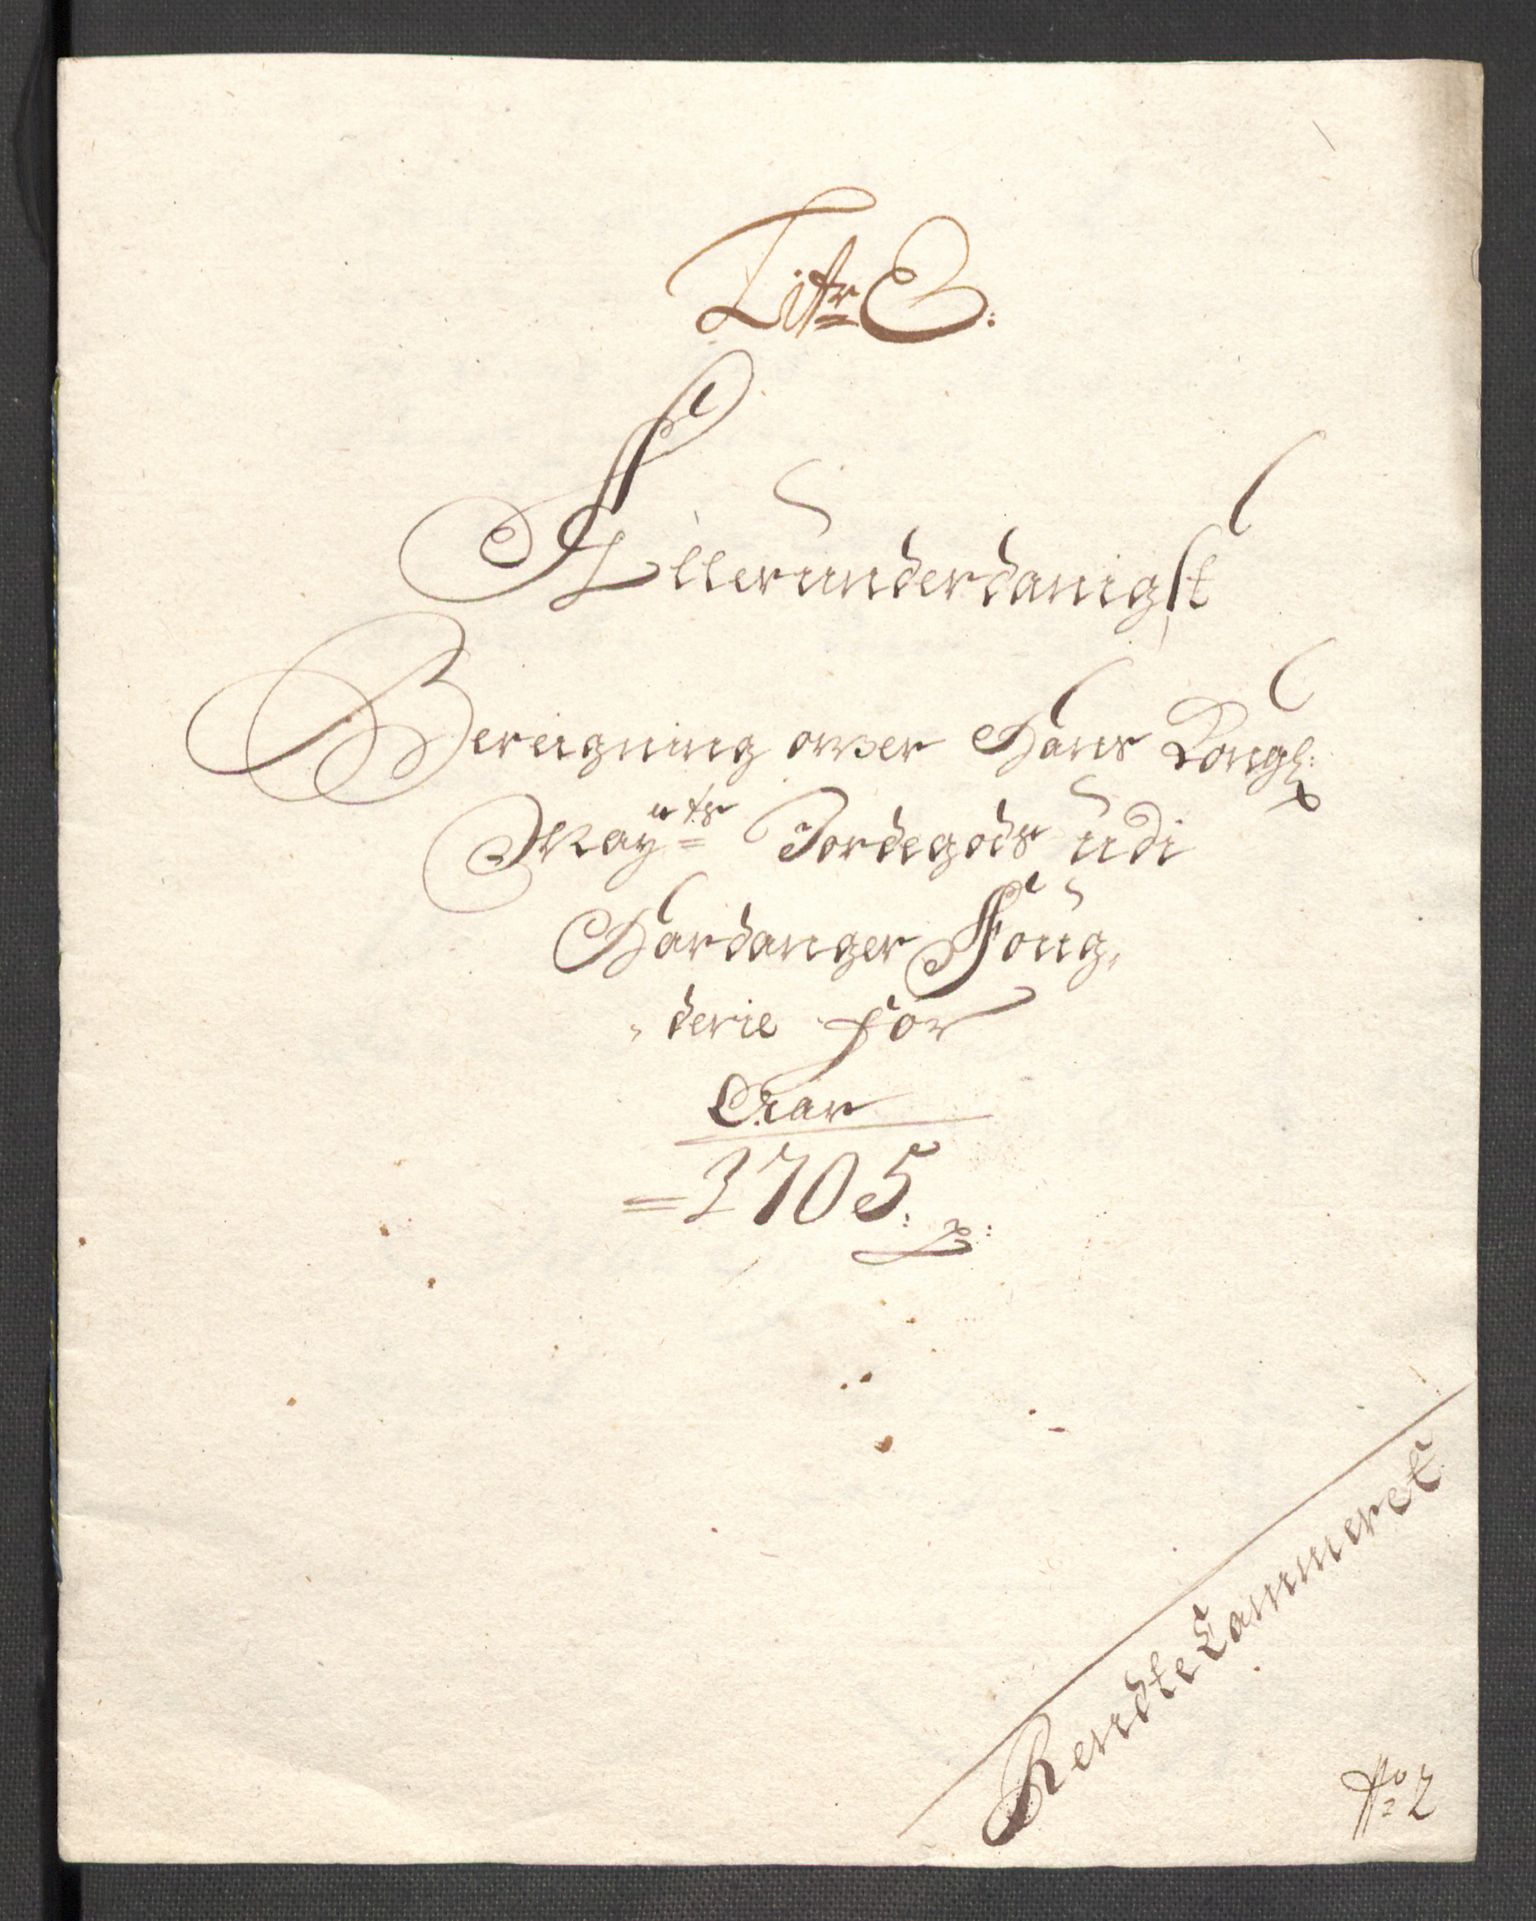 Litr E:
Allerunderdanigst
Bereigning ower Hans Kongl:
Mayts Jordegods udi
Hardanger Foug,
, derie for
Aar
= 1705.
RendteCammeret
No 2